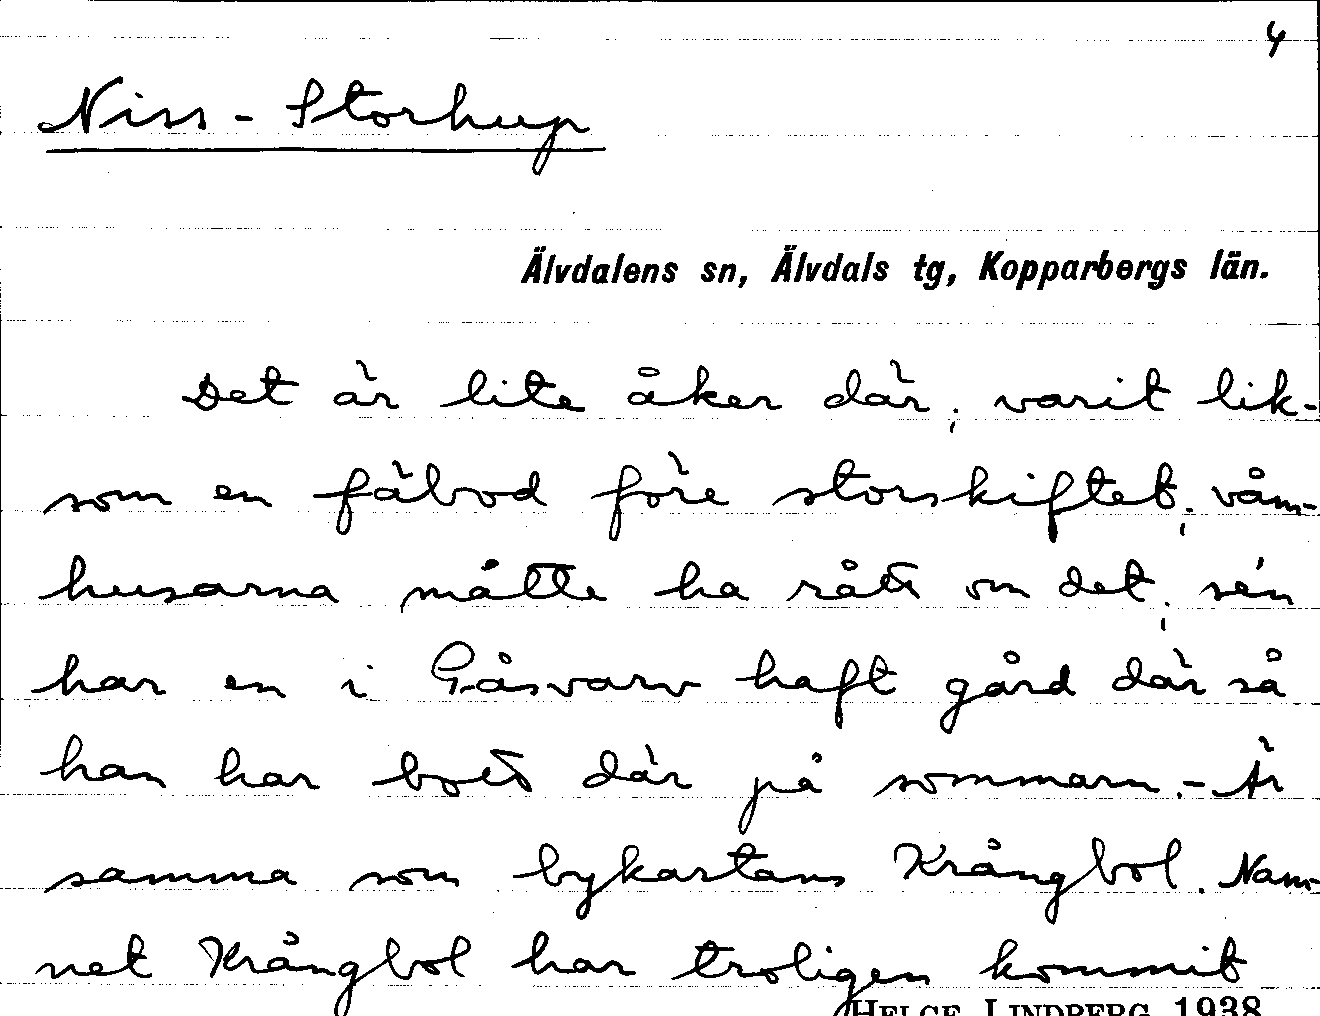 4
Niss-Storhup
Älvdalens sn, Älvdals tg, Kopparbergs län.
Det är lite åker där; varit lik-
som en fäbod före storskiftet; våm-
husarna måtte ha rått om det; sén
har en i Gåsvarv haft gård där så
han har bott där på sommarn.- Är
samma som bykartans Krångbol. Nam-
net Krångbol har troligen kommit
HELGE LINDBERG 1938